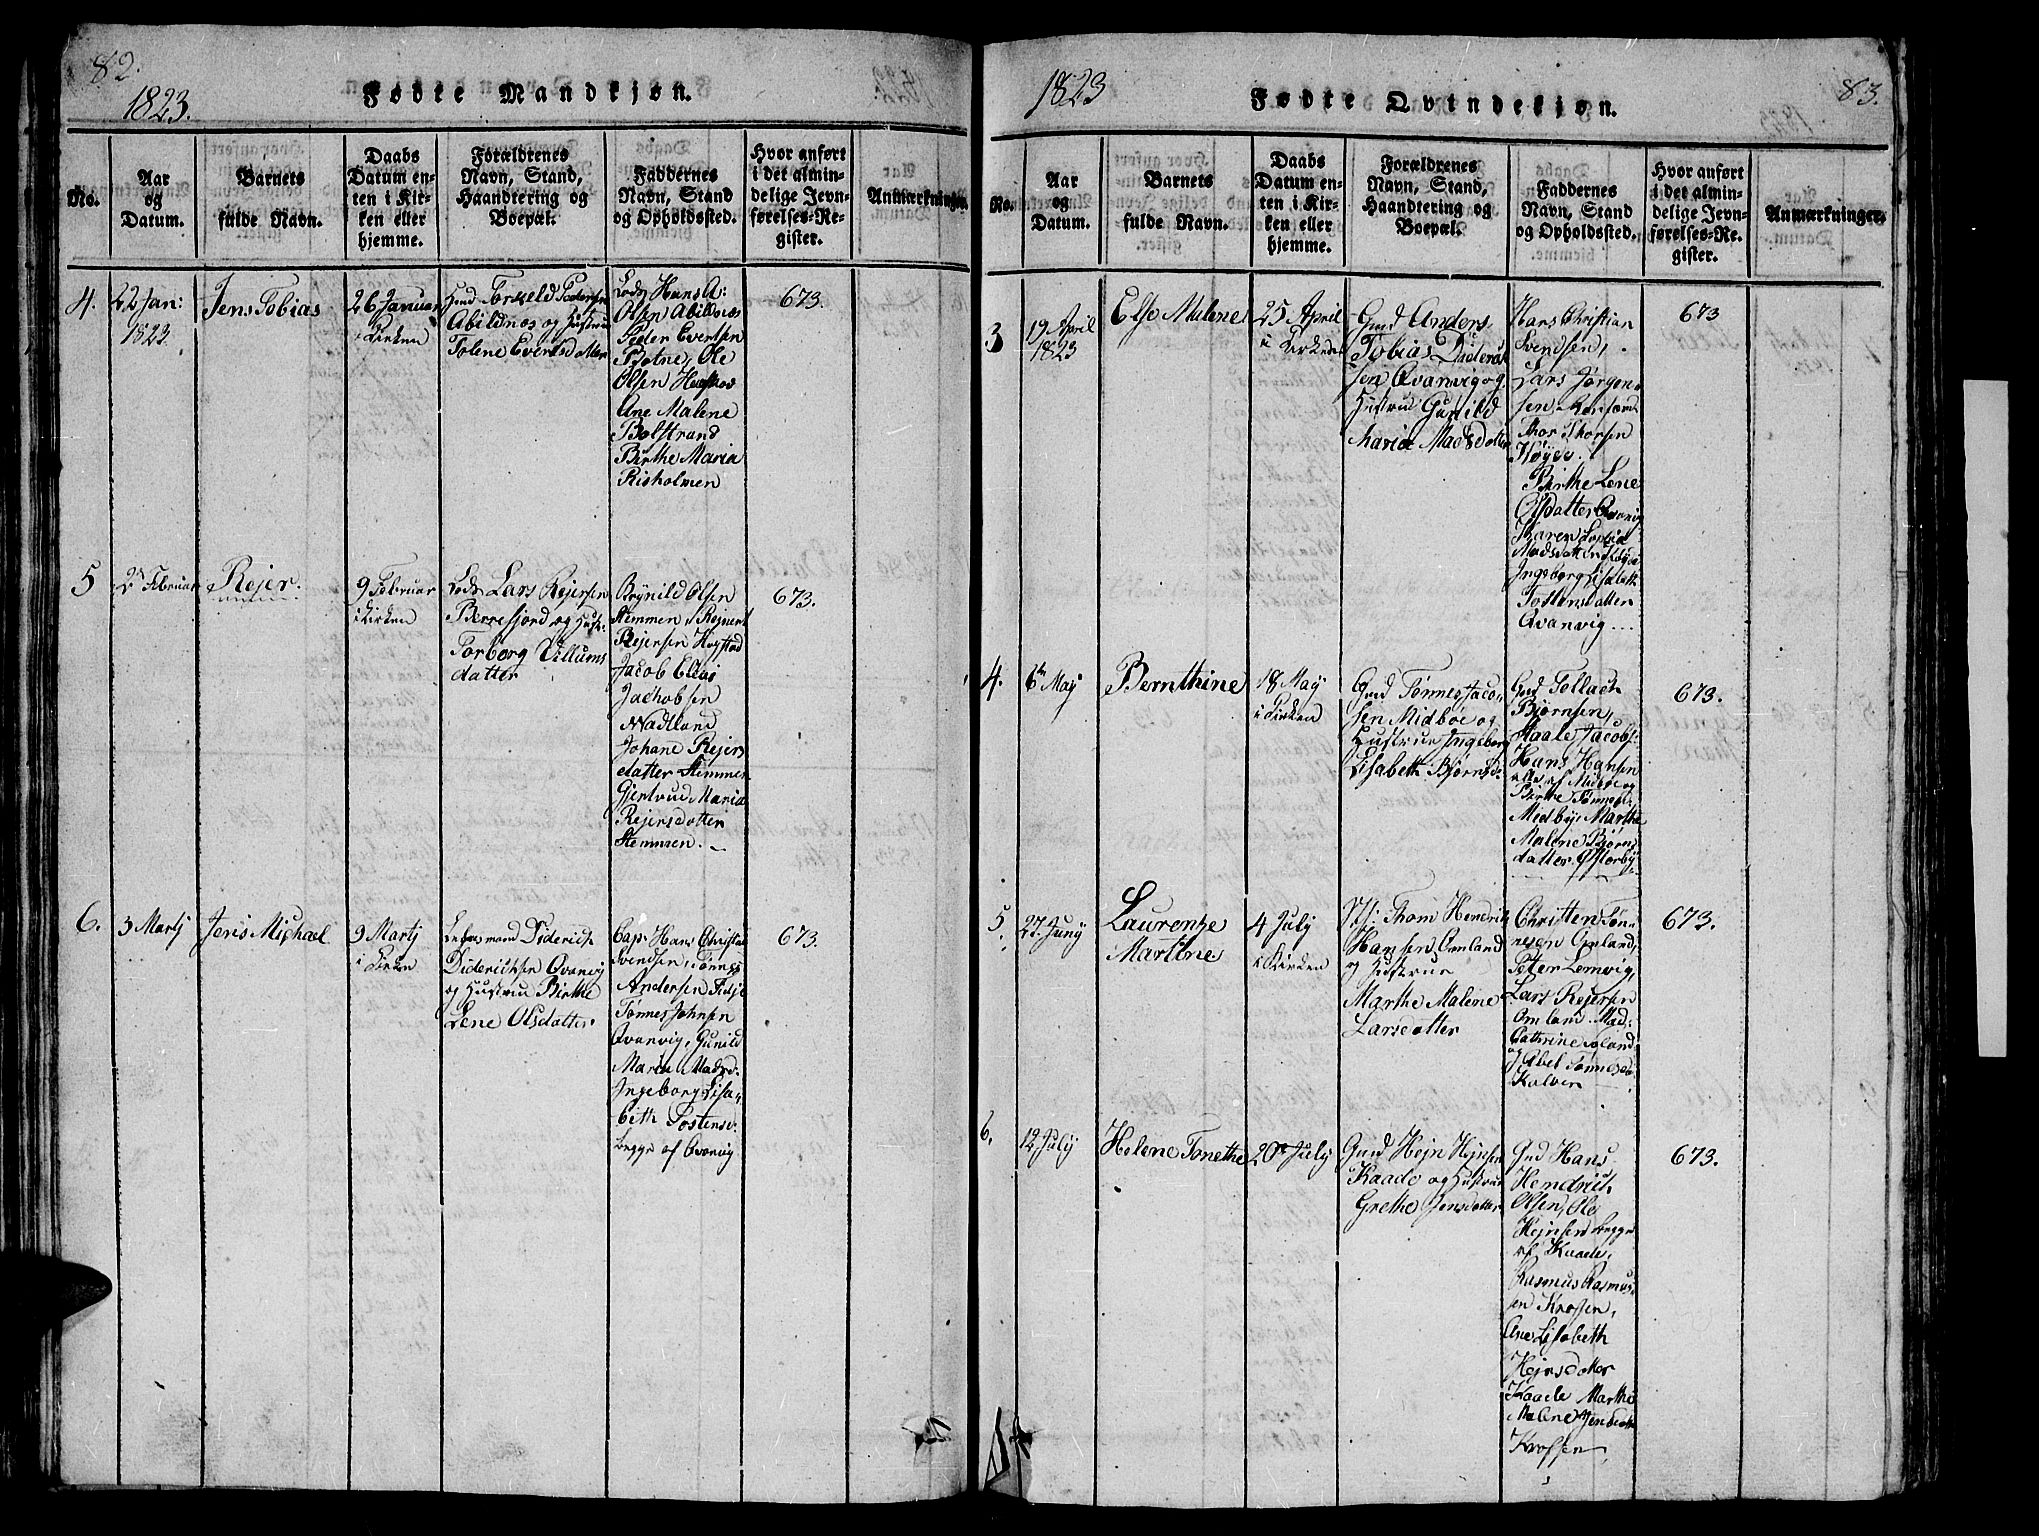 82.
1823.
Fødte Mandkjøn.
No.
Aar
og
Datum.
Barnets
fulde Navn.
Daabs
Datum en-
ten i Kir-
ken eller
hjemme.
Forældrenes
Navn, Stand,
Haandtering og
Boepæl.
Faddernes
Navn, Stand
og Opholdssted.
Hvor anført
i det almin-
delige Jevn-
førelses-Re-
gister.
Anmærkninger.
4.
22 Jan:
1823.
Jens Tobias
26 Januar
i Kirken
Pedersen
Abildnæs og Hustrue
Tolene Evertsdatter
Lods Hans A:
Olsen Abildnæs
Peder Evertsen
Botne, Ole
Olsen
Ane Malene
Bolstrand
Birthe Maria
Risholmen
673.
5
2 Februar
Rejer.
9 Februar
i Kirken
Lods Lars Rejersen
Berrefjord og Hust:
Torborg Villums
datter
Brynild Olsen
Stemmen, Rejnert
Rejersen
Jacob Elias
Jachobsen
Nadland
Johane Rejers
datter Stemmen
Gjertrud Maria
Rejersdatter
Stemmen.
673.
6.
3 Martj
Jens Michael
9 Martj
i Kirken
Diderich
Diderichsen Qvanvig
og Hustrue Birthe
Lene Olsdatter
Cap. Hans Christian
Svendsen, Tønnes
Andersen
Tønnes Johnsen
Qvanvig, Gunild
Maria Madsd.
Ingeborg Lisa-
beth Tostensd.
begge af Qvanvig
673.
1823
Fødte Qvindekjøn.
83.
No.
Aar
og
Datum.
Barnets
fulde Navn.
Daabs
Datum en-
ten i Kir-
ken eller
hjemme.
Forældrenes
Navn, Stand,
Haandtering og
Boepæl.
Faddernes
Navn, Stand
og Opholdssted.
Hvor anført
i det almin-
delige Jevn-
førelses-Re-
gister.
Anmærkninger.
3
19 April
1823
Else Malene
25 April
i Kirken
Gmd Anders
Tobias Diderich
sen Qvanvig og
Hustrue Gunild
Maria Madsdatter
Hans Christian
Svendsen,
Lars Jørgen-
sen
Thorsen
Birthe Lene
Olsdatter Qvanvig
Karen
Madsdatter
Ingeborg Lisabeth
Tostensdatter
Qvanvig
673
4.
6 Maj
Bernthine
18 May
i Kirken
Gmd Tønnes Jacob
sen Midbøe og
Hustrue Ingeborg
Lisabeth Bjørnsd.
Gmd Tollach
Bjørnsen,
Staale Jacobs:
Hans Hansen
alle af Midbøe og
Birthe Tønnesd.
Midbye Marthe
Malene Bjørns
datter Østerbye
673.
5.
27 Juny
Laurentze
Martine
4 July
i Kirken
Thom Hendrik
Hansen Omland
og Hustrue
Marthe Malene
Larsdatter
Christen Tøn-
nesen Omland,
Peter Lemvig,
Lars Rejersen
Omland Mad:
Cathrine
og Abel Tønnesd.
673.
6.
12 July
Helene Tonethe
20 July
Gmd Hejn Hejnsen
Kaade og Hustrue
Grethe Jensdatter
Gmd Hans
Hendrich
Olsen, Ole
Hejnsen begge
af Kaade,
Rasmus Rasmus-
sen Krossen,
Ane Lisabeth
Hejnsdatter
Kaade Marthe
Malene Jensdatter
Krossen
673.